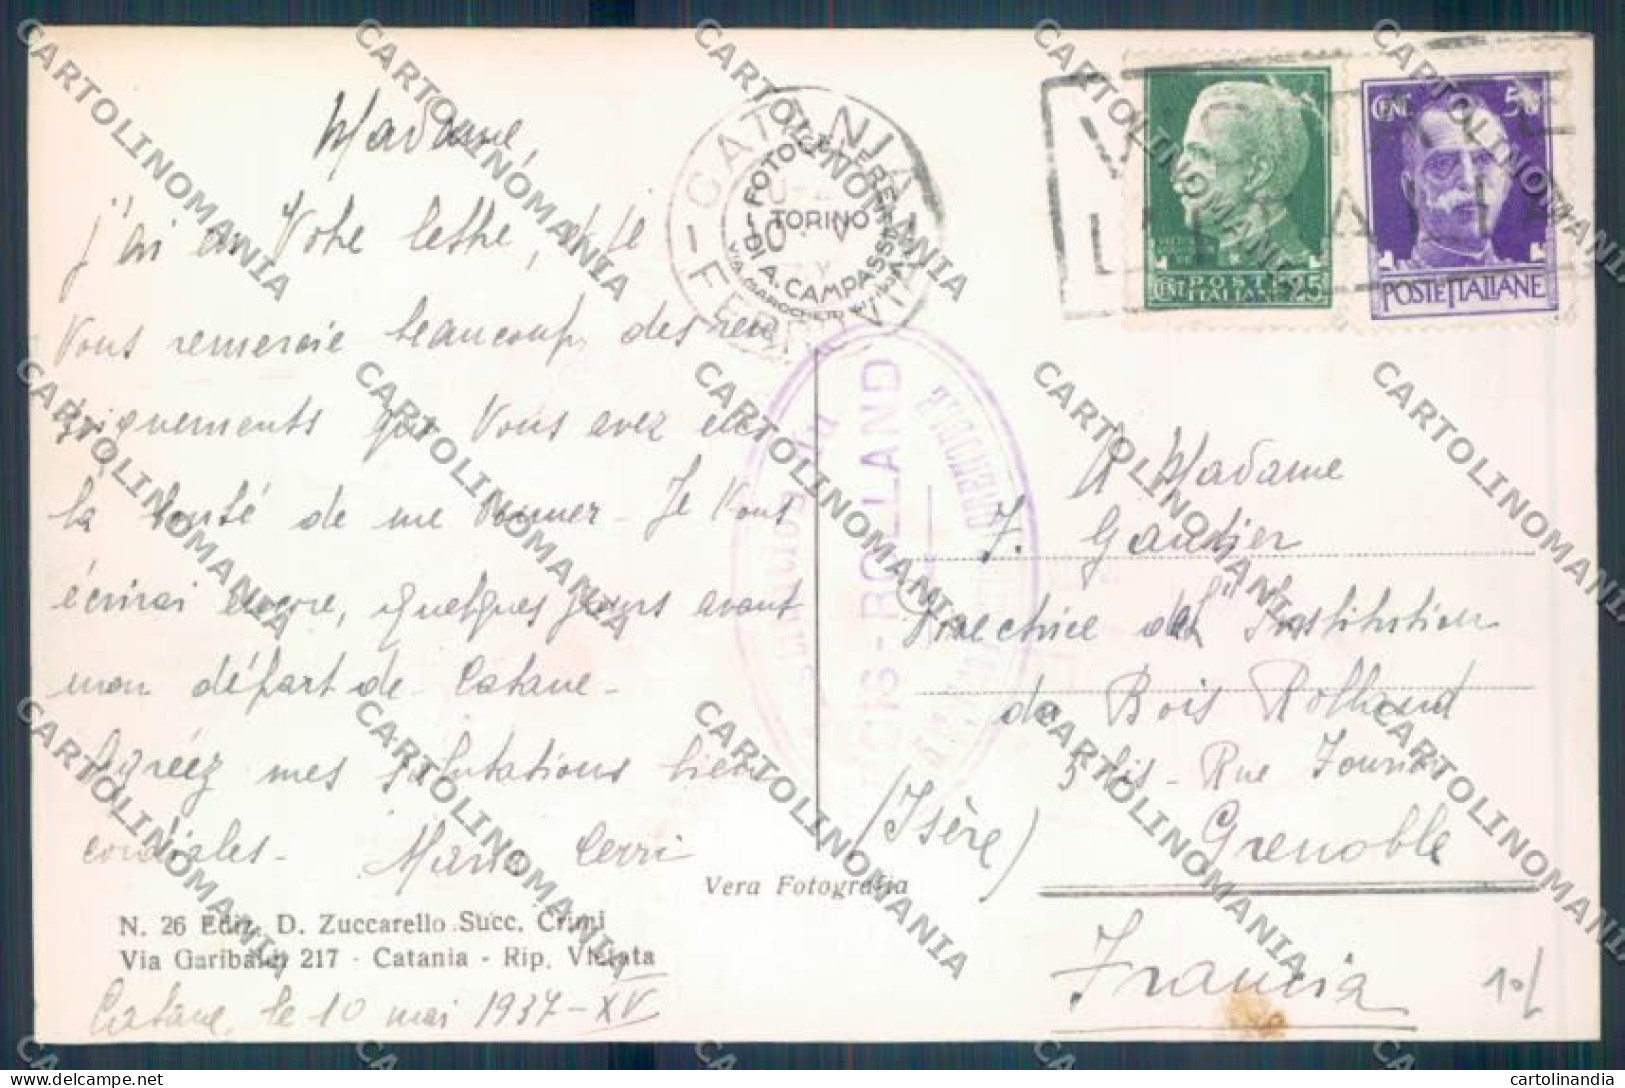 Madame,
j'ai eu Votre lettre, et je
Vous remercie beaucoup des ren
seignements que Vous avez eus
la bonté de me donner - Je Vous
écrirai encore, quelques jours avant
mon départ de Catane -
Agréez mes salutations bien
cordiales - Cerri
N. 26 Ediz. D. Zuccarello Succ. Crimi
Via Garibaldi 217 - Catania - Rip. Vietata
Catane, le 10 mai 1937 - XV
Vera Fotografia
CATANIA
FERROVIA
FOTOCELERE
TORINO
DI A. CAMPASSI
CENT 25
POSTE
ITALIANE
CENT 50
POSTE ITALIANE
BOIS-ROLLAND
GRENOBLE
A Madame
J. Gaudier
Directrice de l'Institution
de Bois Rolland
5 bis - Rue Fourier
(Isère) Grenoble
Francia
10/
CARTOLINOMANIA
cartolinandia